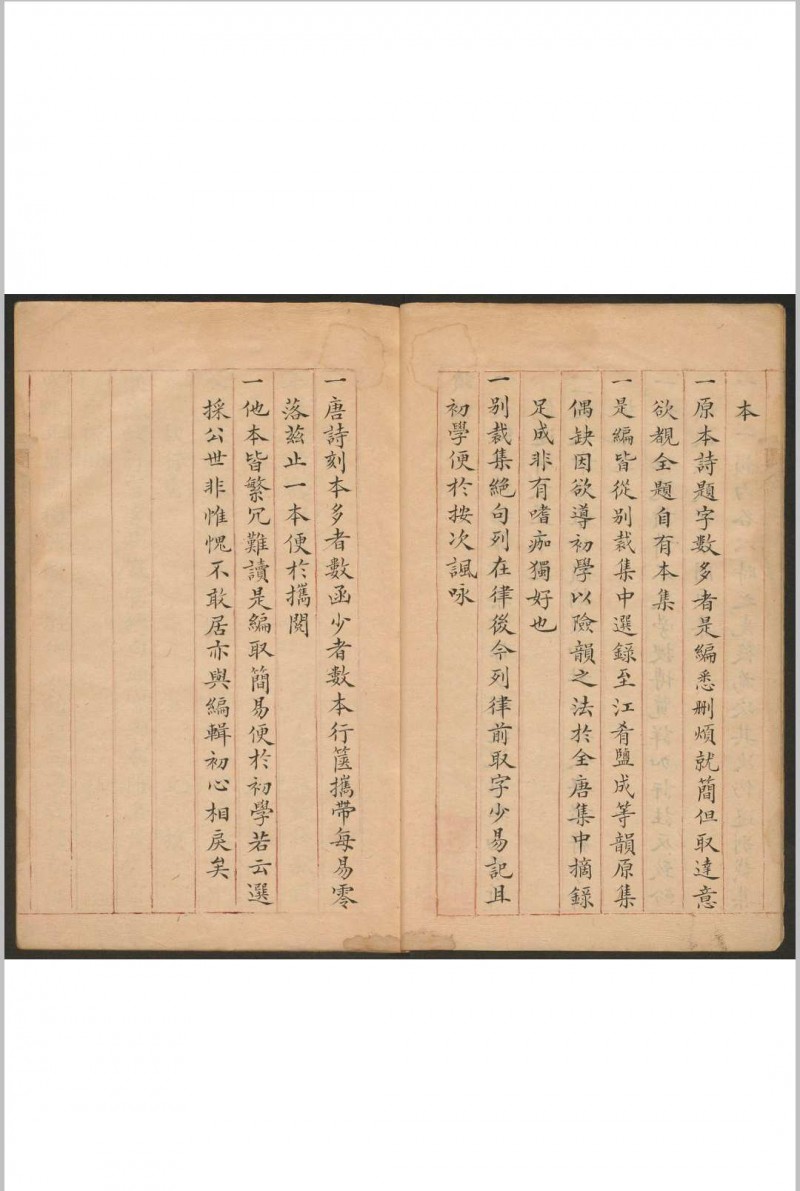 本
一原本詩題字數多者是編悉刪煩就簡但取達意
欲覩全題自有本集
一是編皆從別裁集中選錄至江肴鹽咸等韻原集
偶缺因欲導初學以險韻之法於全唐集中摘錄
足成非有嗜痂獨好也
一別裁集絕句列在律後今列律前取字少易記且
初學便於按次諷咏
一唐詩刻本多者數函少者數本行篋攜帶每易零
落茲止一本便於攜閱
一他本皆繁冗難讀是編取簡易便於初學若云選
採公世非惟愧不敢居亦與編輯初心相戾矣